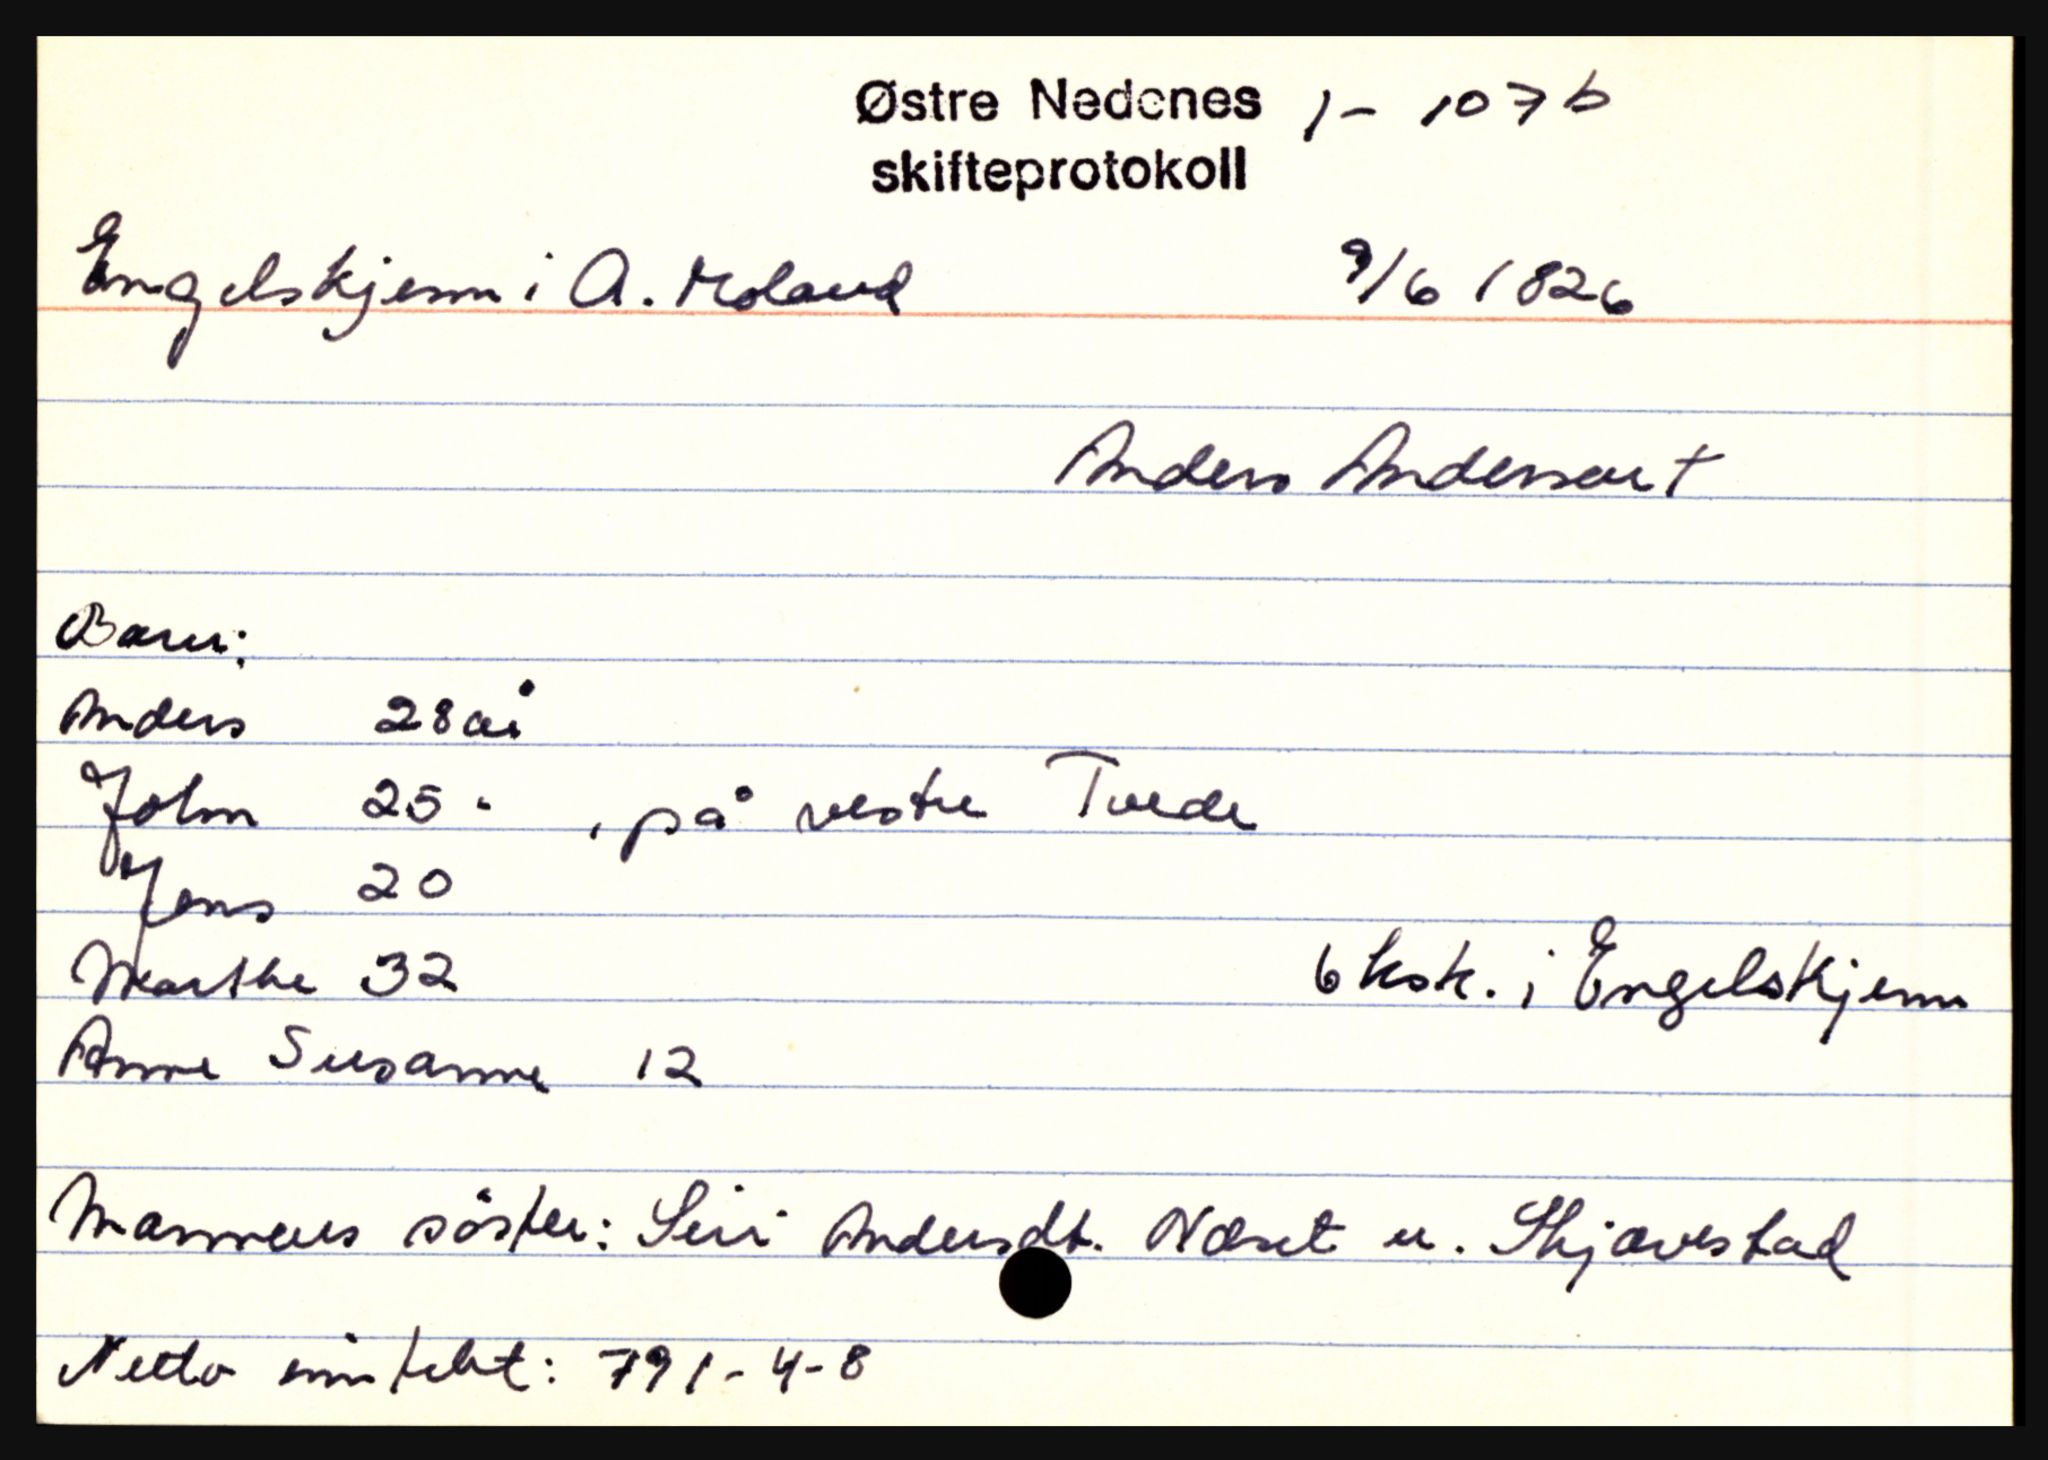 Østre Nedenes 1 - 107b
skifteprotokoll
Engelskjenn i A. Moland 9/6 1826
Anders Anderssen †
Barn:
Anders 28 år
John 25 " , på vestre Tvede
Jens 20
Marthe 32
6 ksk. i Engelskjenn
Anne Susanne 12
Mannens söster: Siri Andersdt. Næset u. Skjævestad
Netto inntekt: 791-4-8